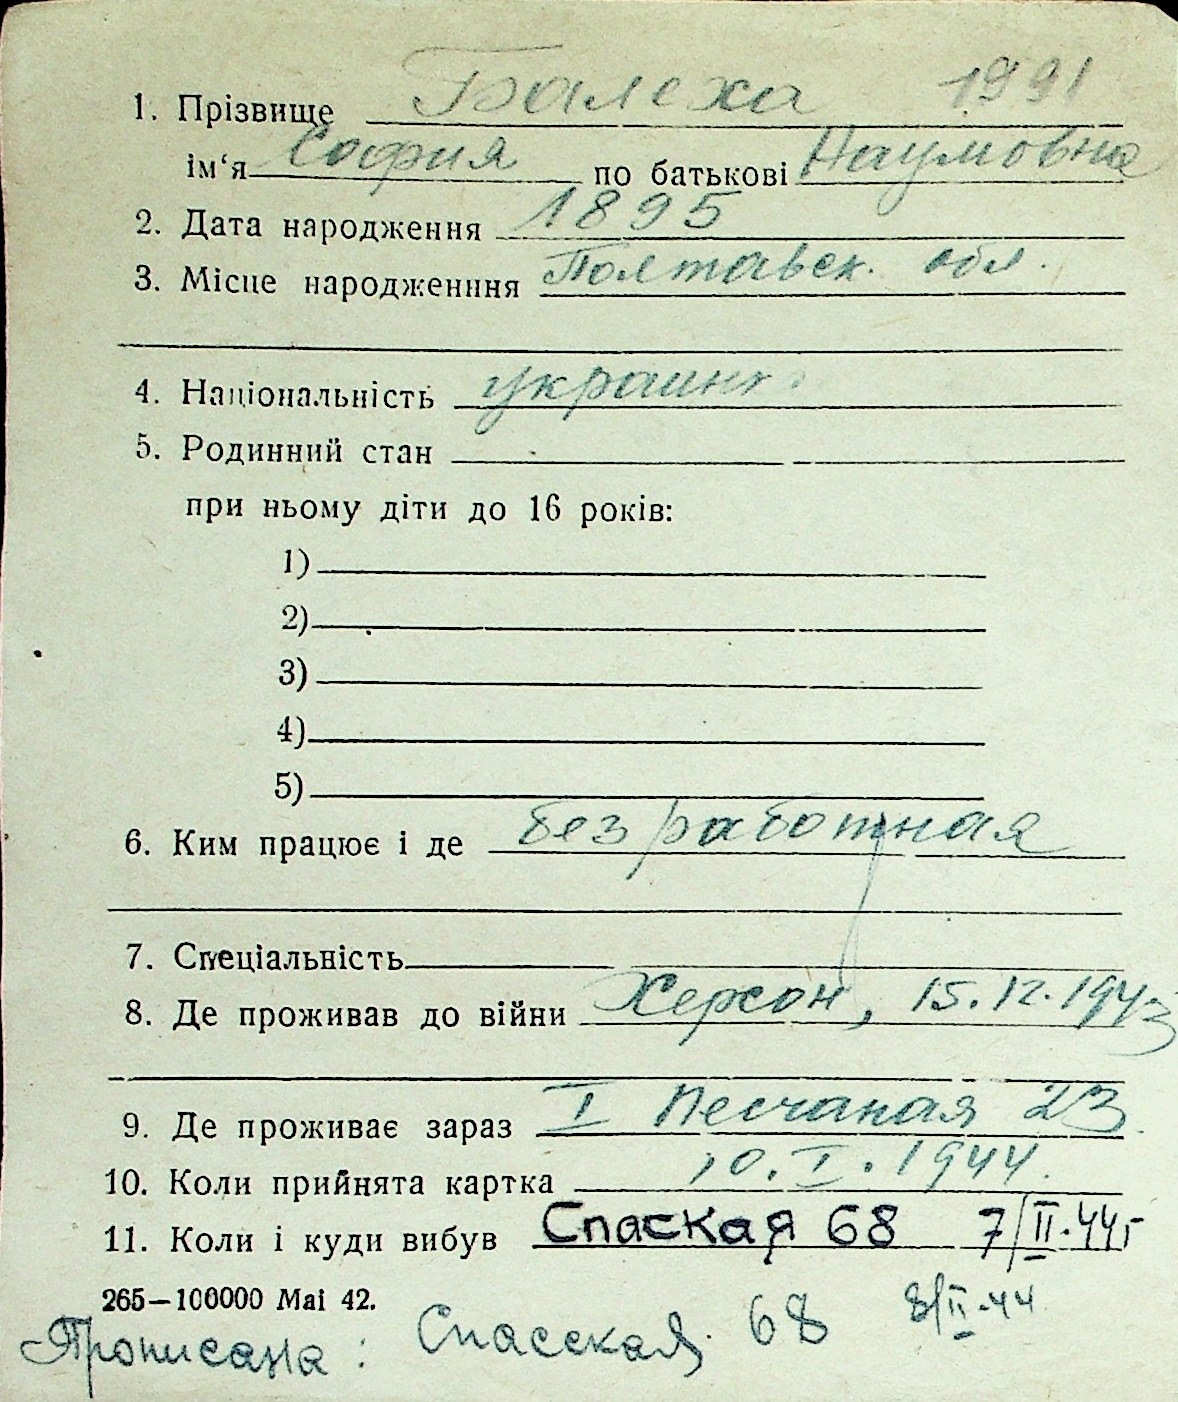 1. Прізвище Балеха 1991
ім‘я София по батькові Наумовна
2. Дата народження 1895
3. Місце народженння Полтавск. обл.
4. Національність украинк
5. Родинний стан
при ньому діти до 16 років:
1)
2)
3)
4)
5)
6. Ким працює і де безработная
7. Спеціальність
8. Де проживав до війни Херсон, 15.12.1943
9. Де проживає зараз I Песчаная 23
10. Коли прийнята картка 10.I.1944.
11. Коли і куди вибув Спаская 68 7/II.44г
265—100000 Mai 42.
8/II-44
Прописана: Спасская 68